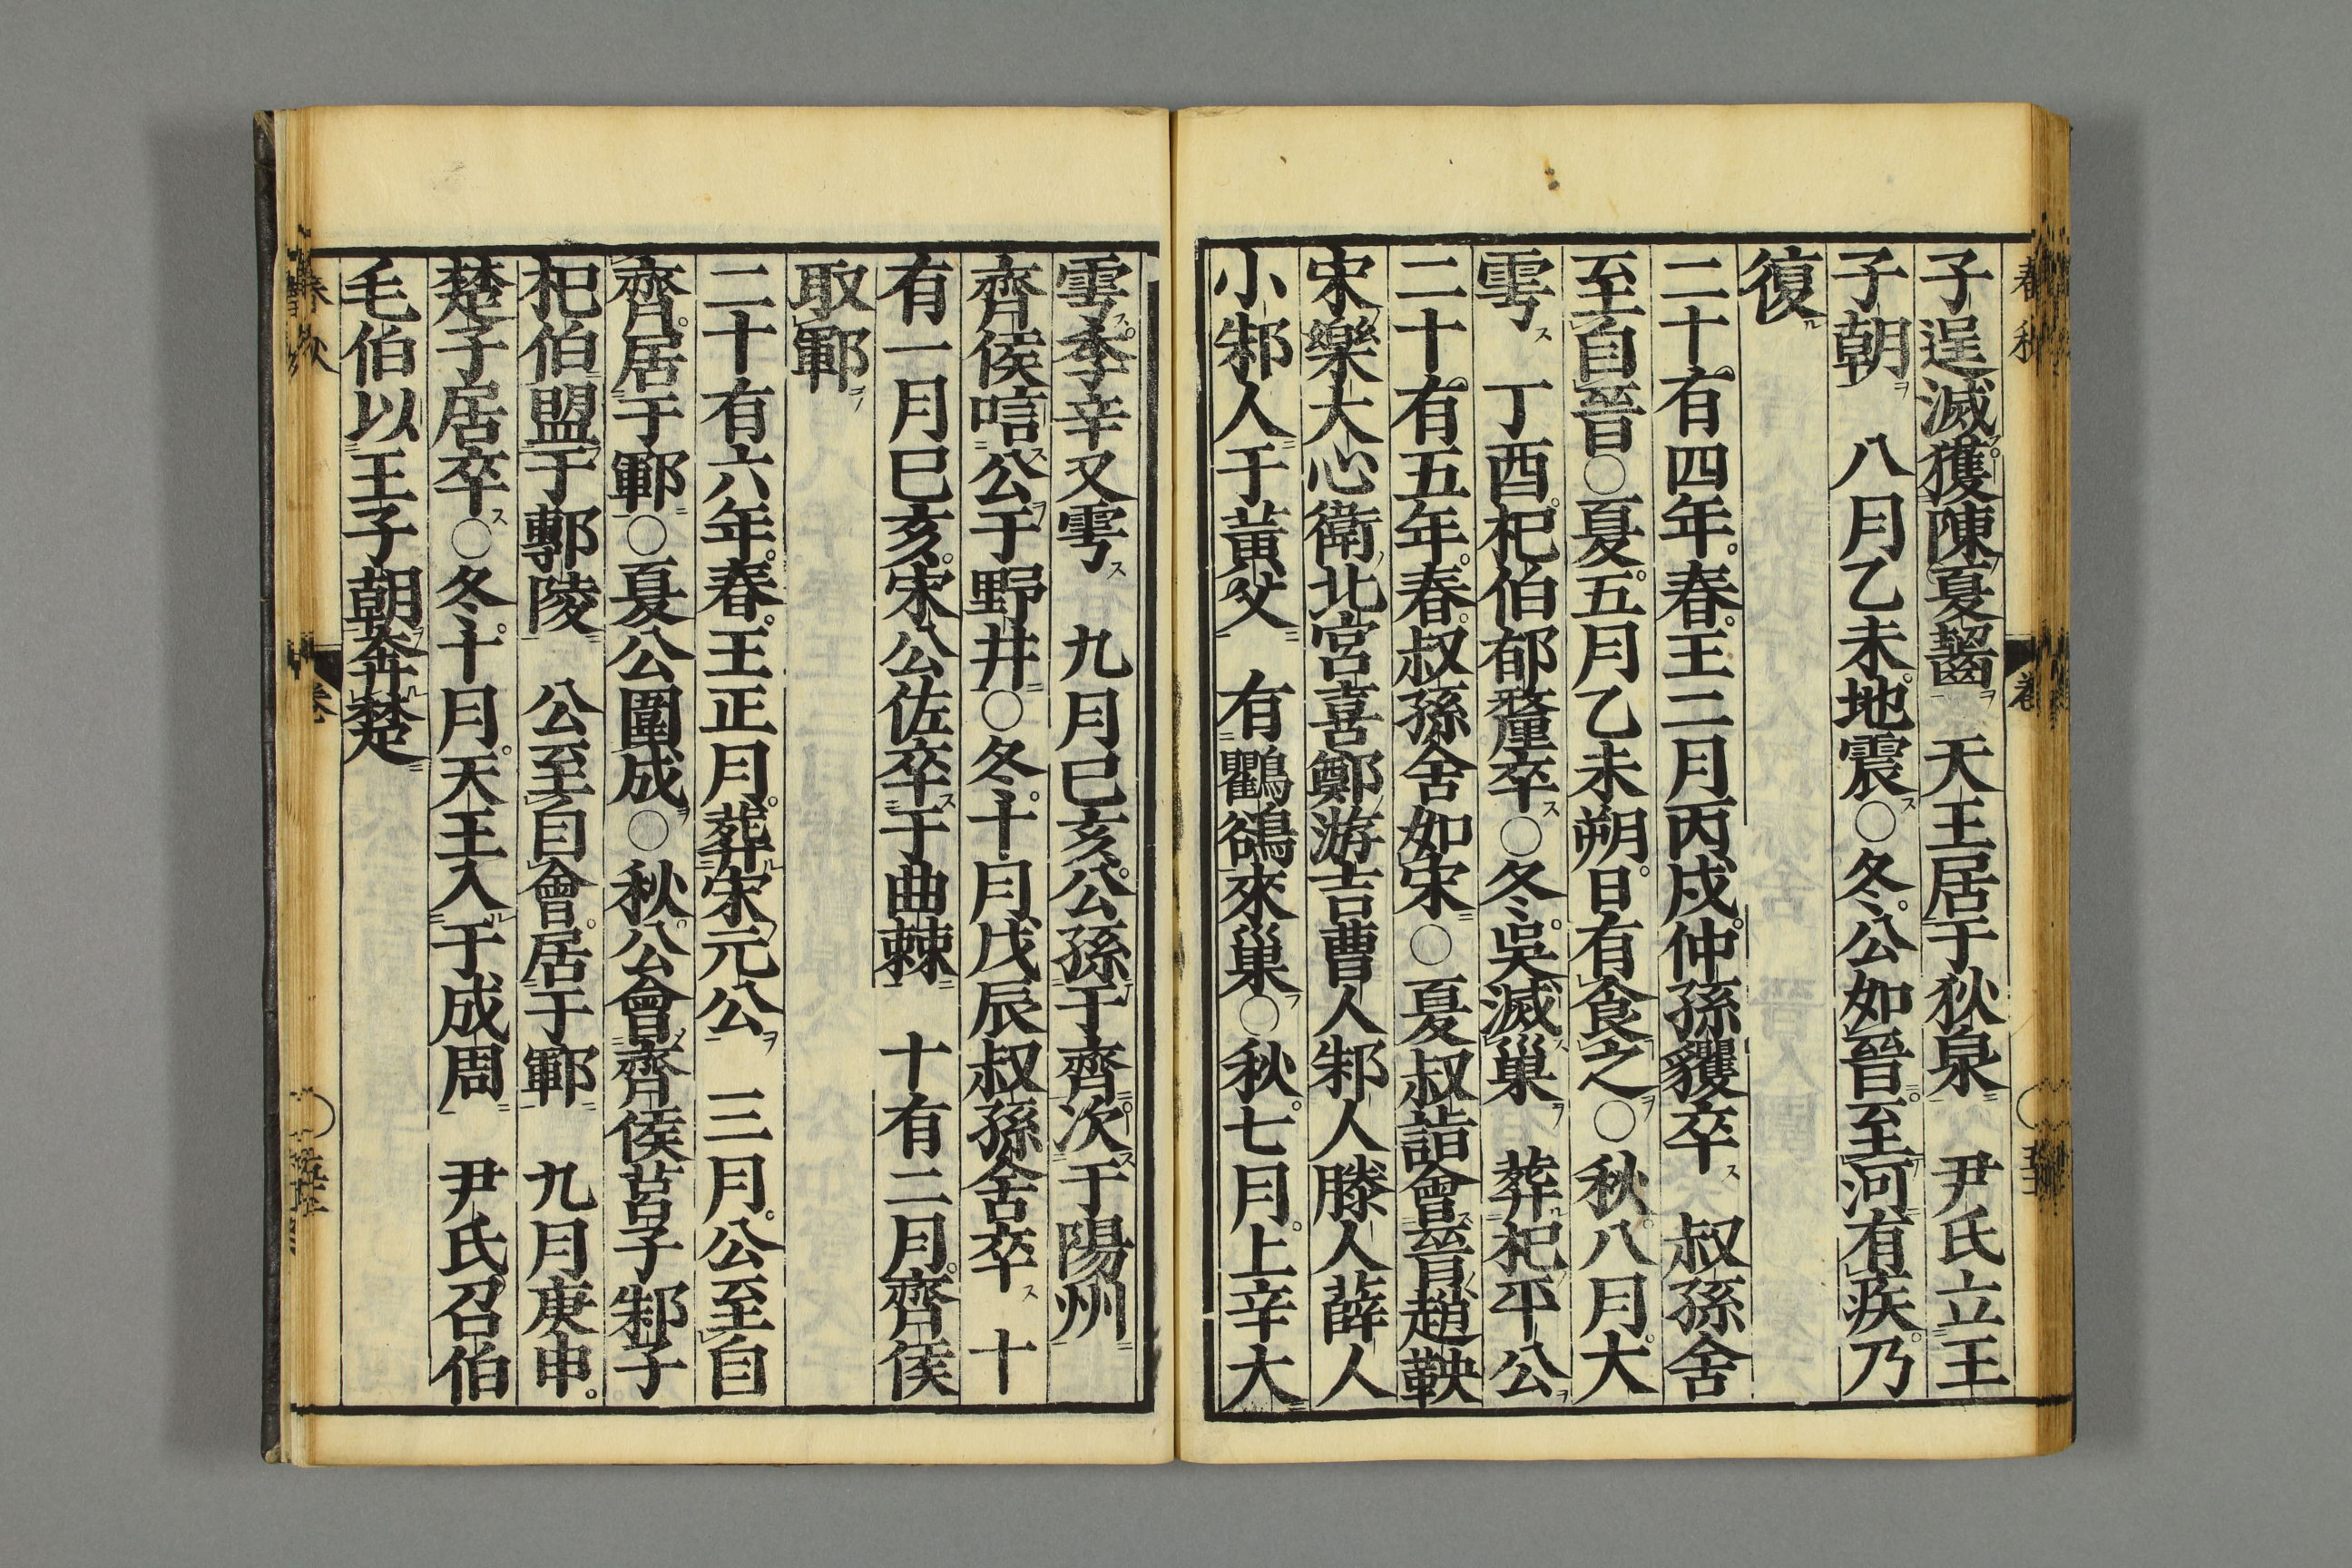 子逞滅獲陳夏齧　天王居于狄泉　尹氏立王
子朝　八月乙未地震○冬公如晉至河有疾乃
復
二十有四年春王二月丙戌仲孫貜卒　叔孫舍
至自晉○夏五月乙未朔日有食之○秋八月大
雩　丁酉杞伯郁釐卒○冬吳滅巢　葬杞平公
二十有五年春叔孫舍如宋○夏叔詣會晉趙鞅
宋樂大心衛北宮喜鄭游吉曹人邾人滕人薛人
小邾人于黃父　有鸜鵒來巢○秋七月上辛大
雩季辛又雩　九月己亥公孫于齊次于陽州
齊侯唁公于野井○冬十月戊辰叔孫舍卒　十
有一月己亥宋公佐卒于曲棘　十有二月齊侯
取鄆
二十有六年春王正月葬宋元公　三月公至自
齊居于鄆○夏公圍成○秋公會齊侯莒子邾子
杞伯盟于鄟陵　公至自會居于鄆　九月庚申
楚子居卒○冬十月天王入于成周　尹氏召伯
毛伯以王子朝奔楚